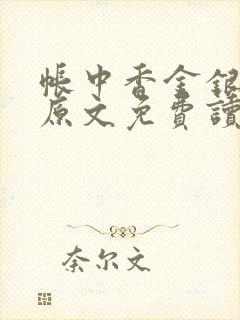 帳中香金銀
原文免費讀
奈尔文